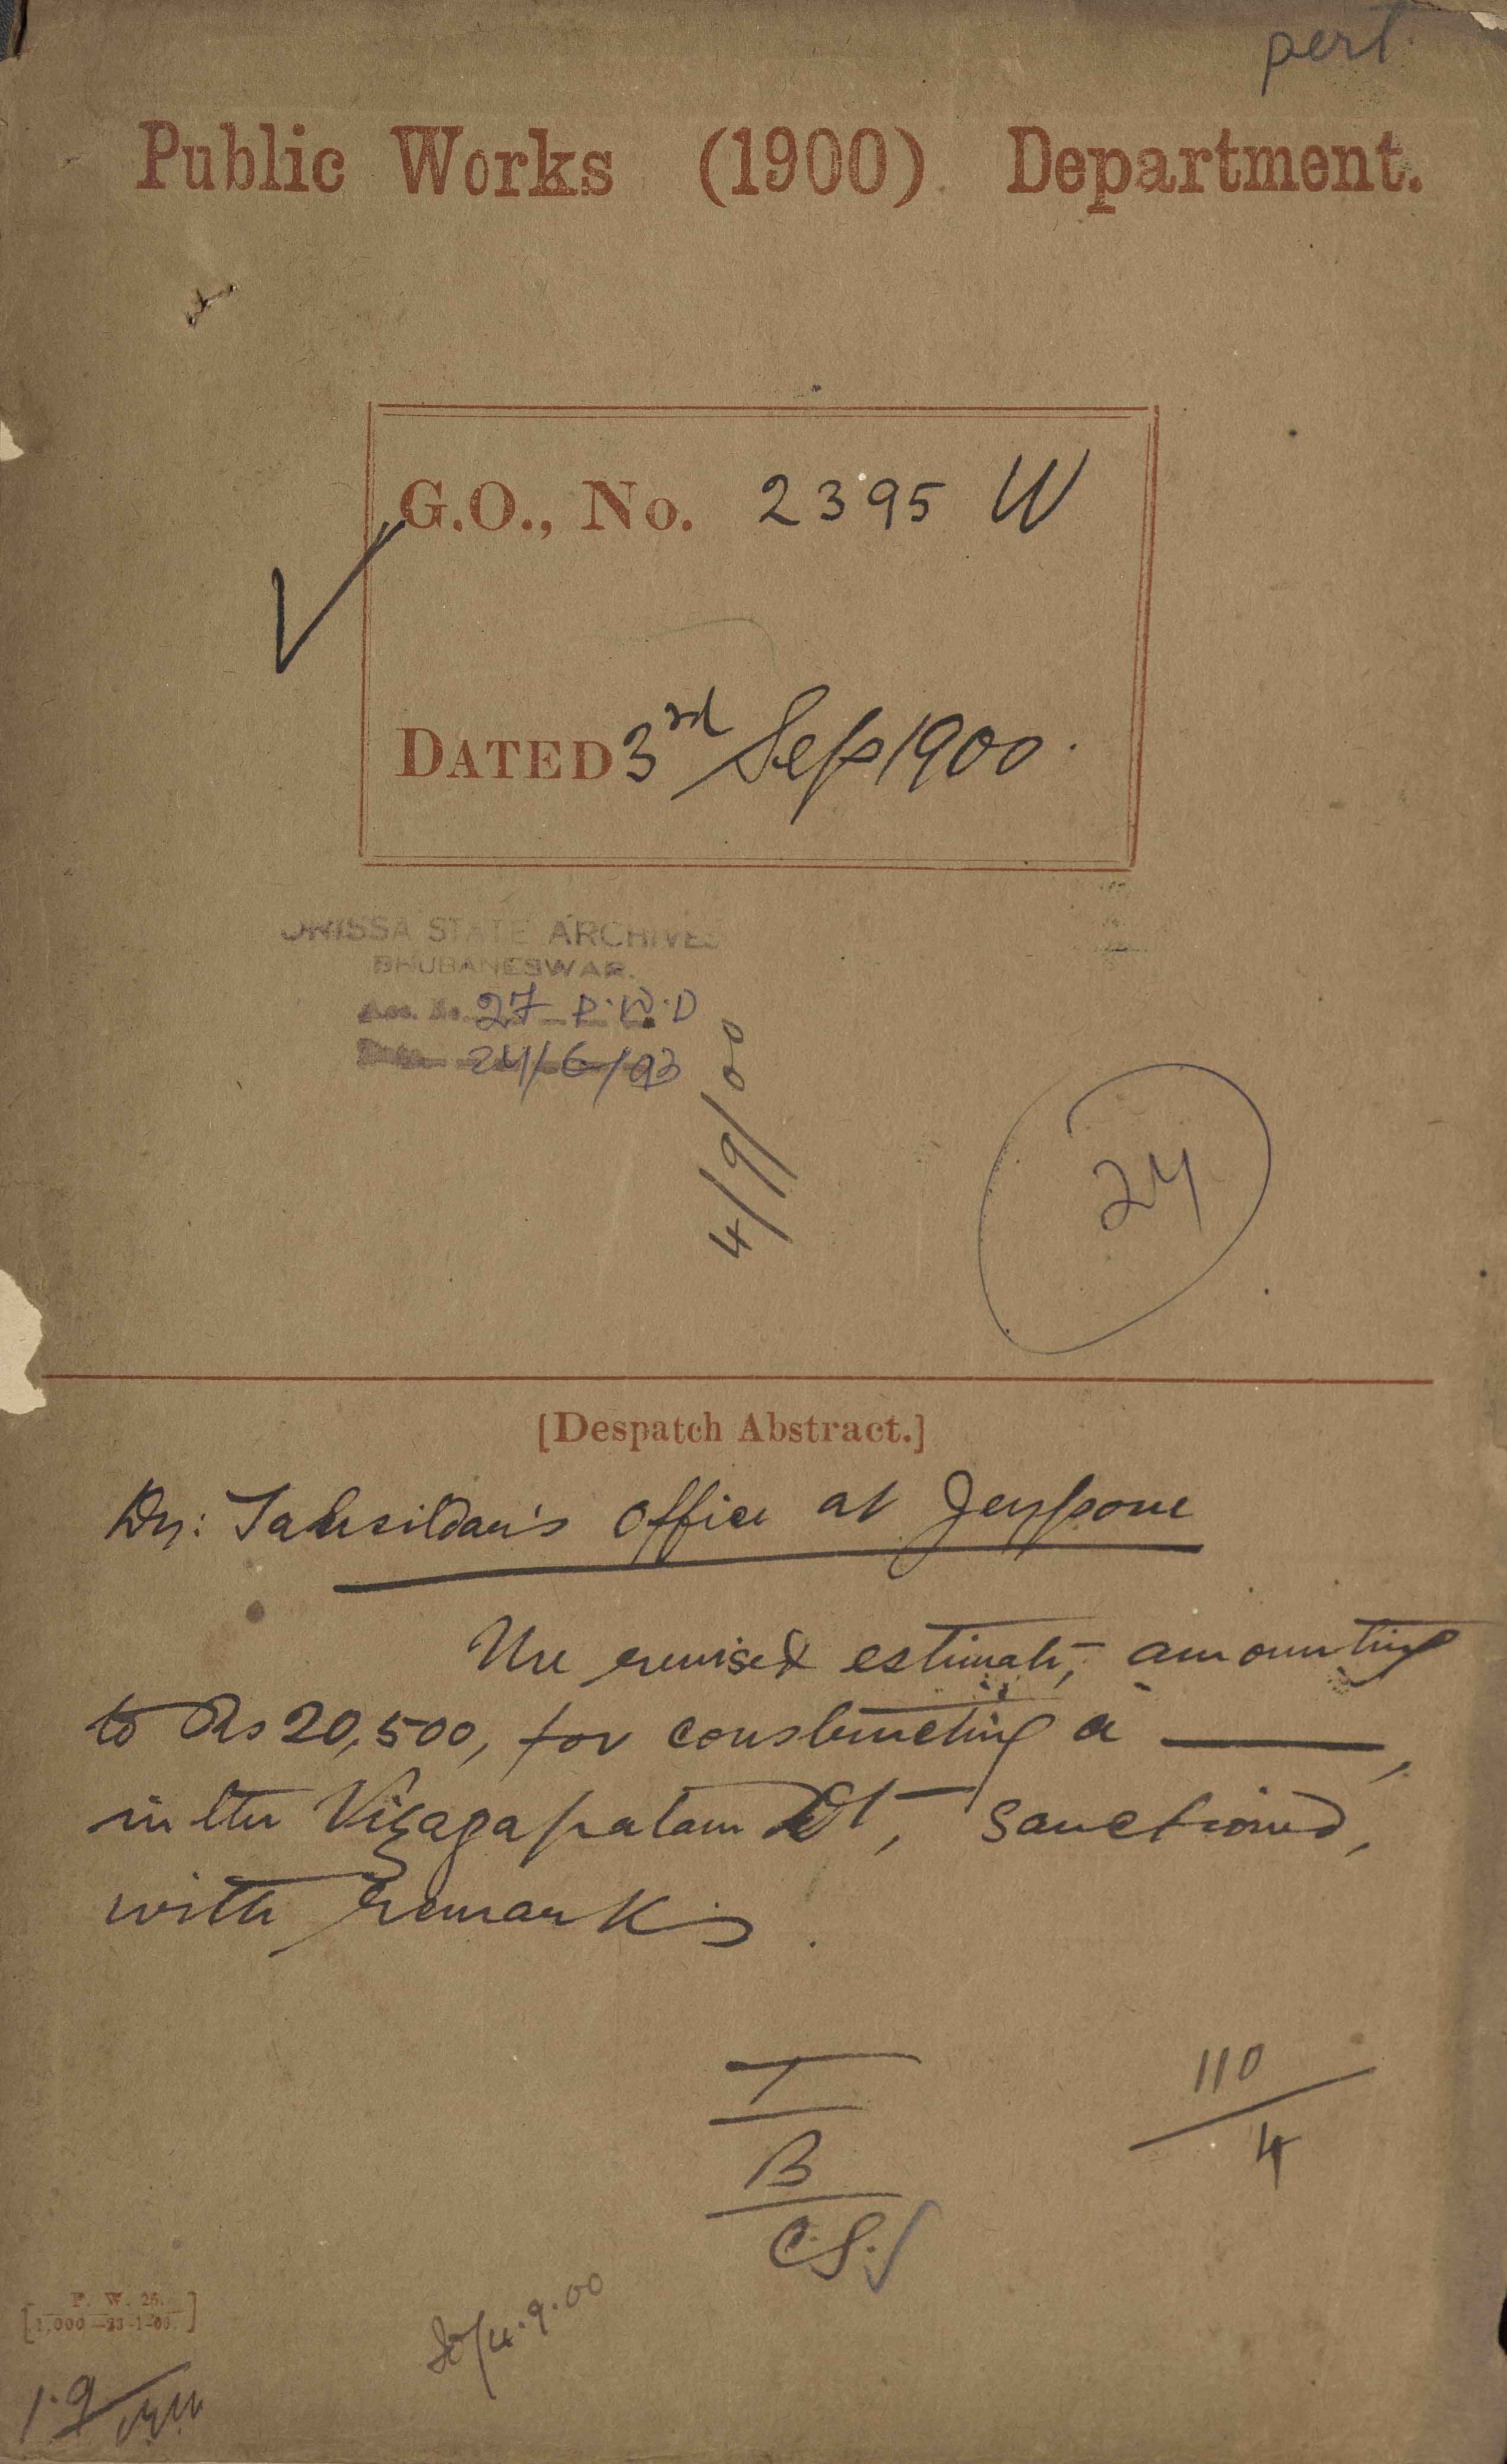 pert.
Public Works (1900) Department.
G.O., No. 2395 W
DATED 3rd Sep 1900.
ORISSA STATE ARCHIVES
BHUBANESWAR.
Acc. No. 27 P.W.D
Date 24/6/93
4/9/00
24
[Despatch Abstract.]
Dy: Tahsildar's office at Jeypore
The revised estimate, amounting
to Rs 20,500, for constructing a ———,
in the Vizagapatam Dt, sanctioned,
with remarks.
T
B
C.S.
110
4
P. W. 26.
[1,000—23-1-00.]
4.9.00
1.9